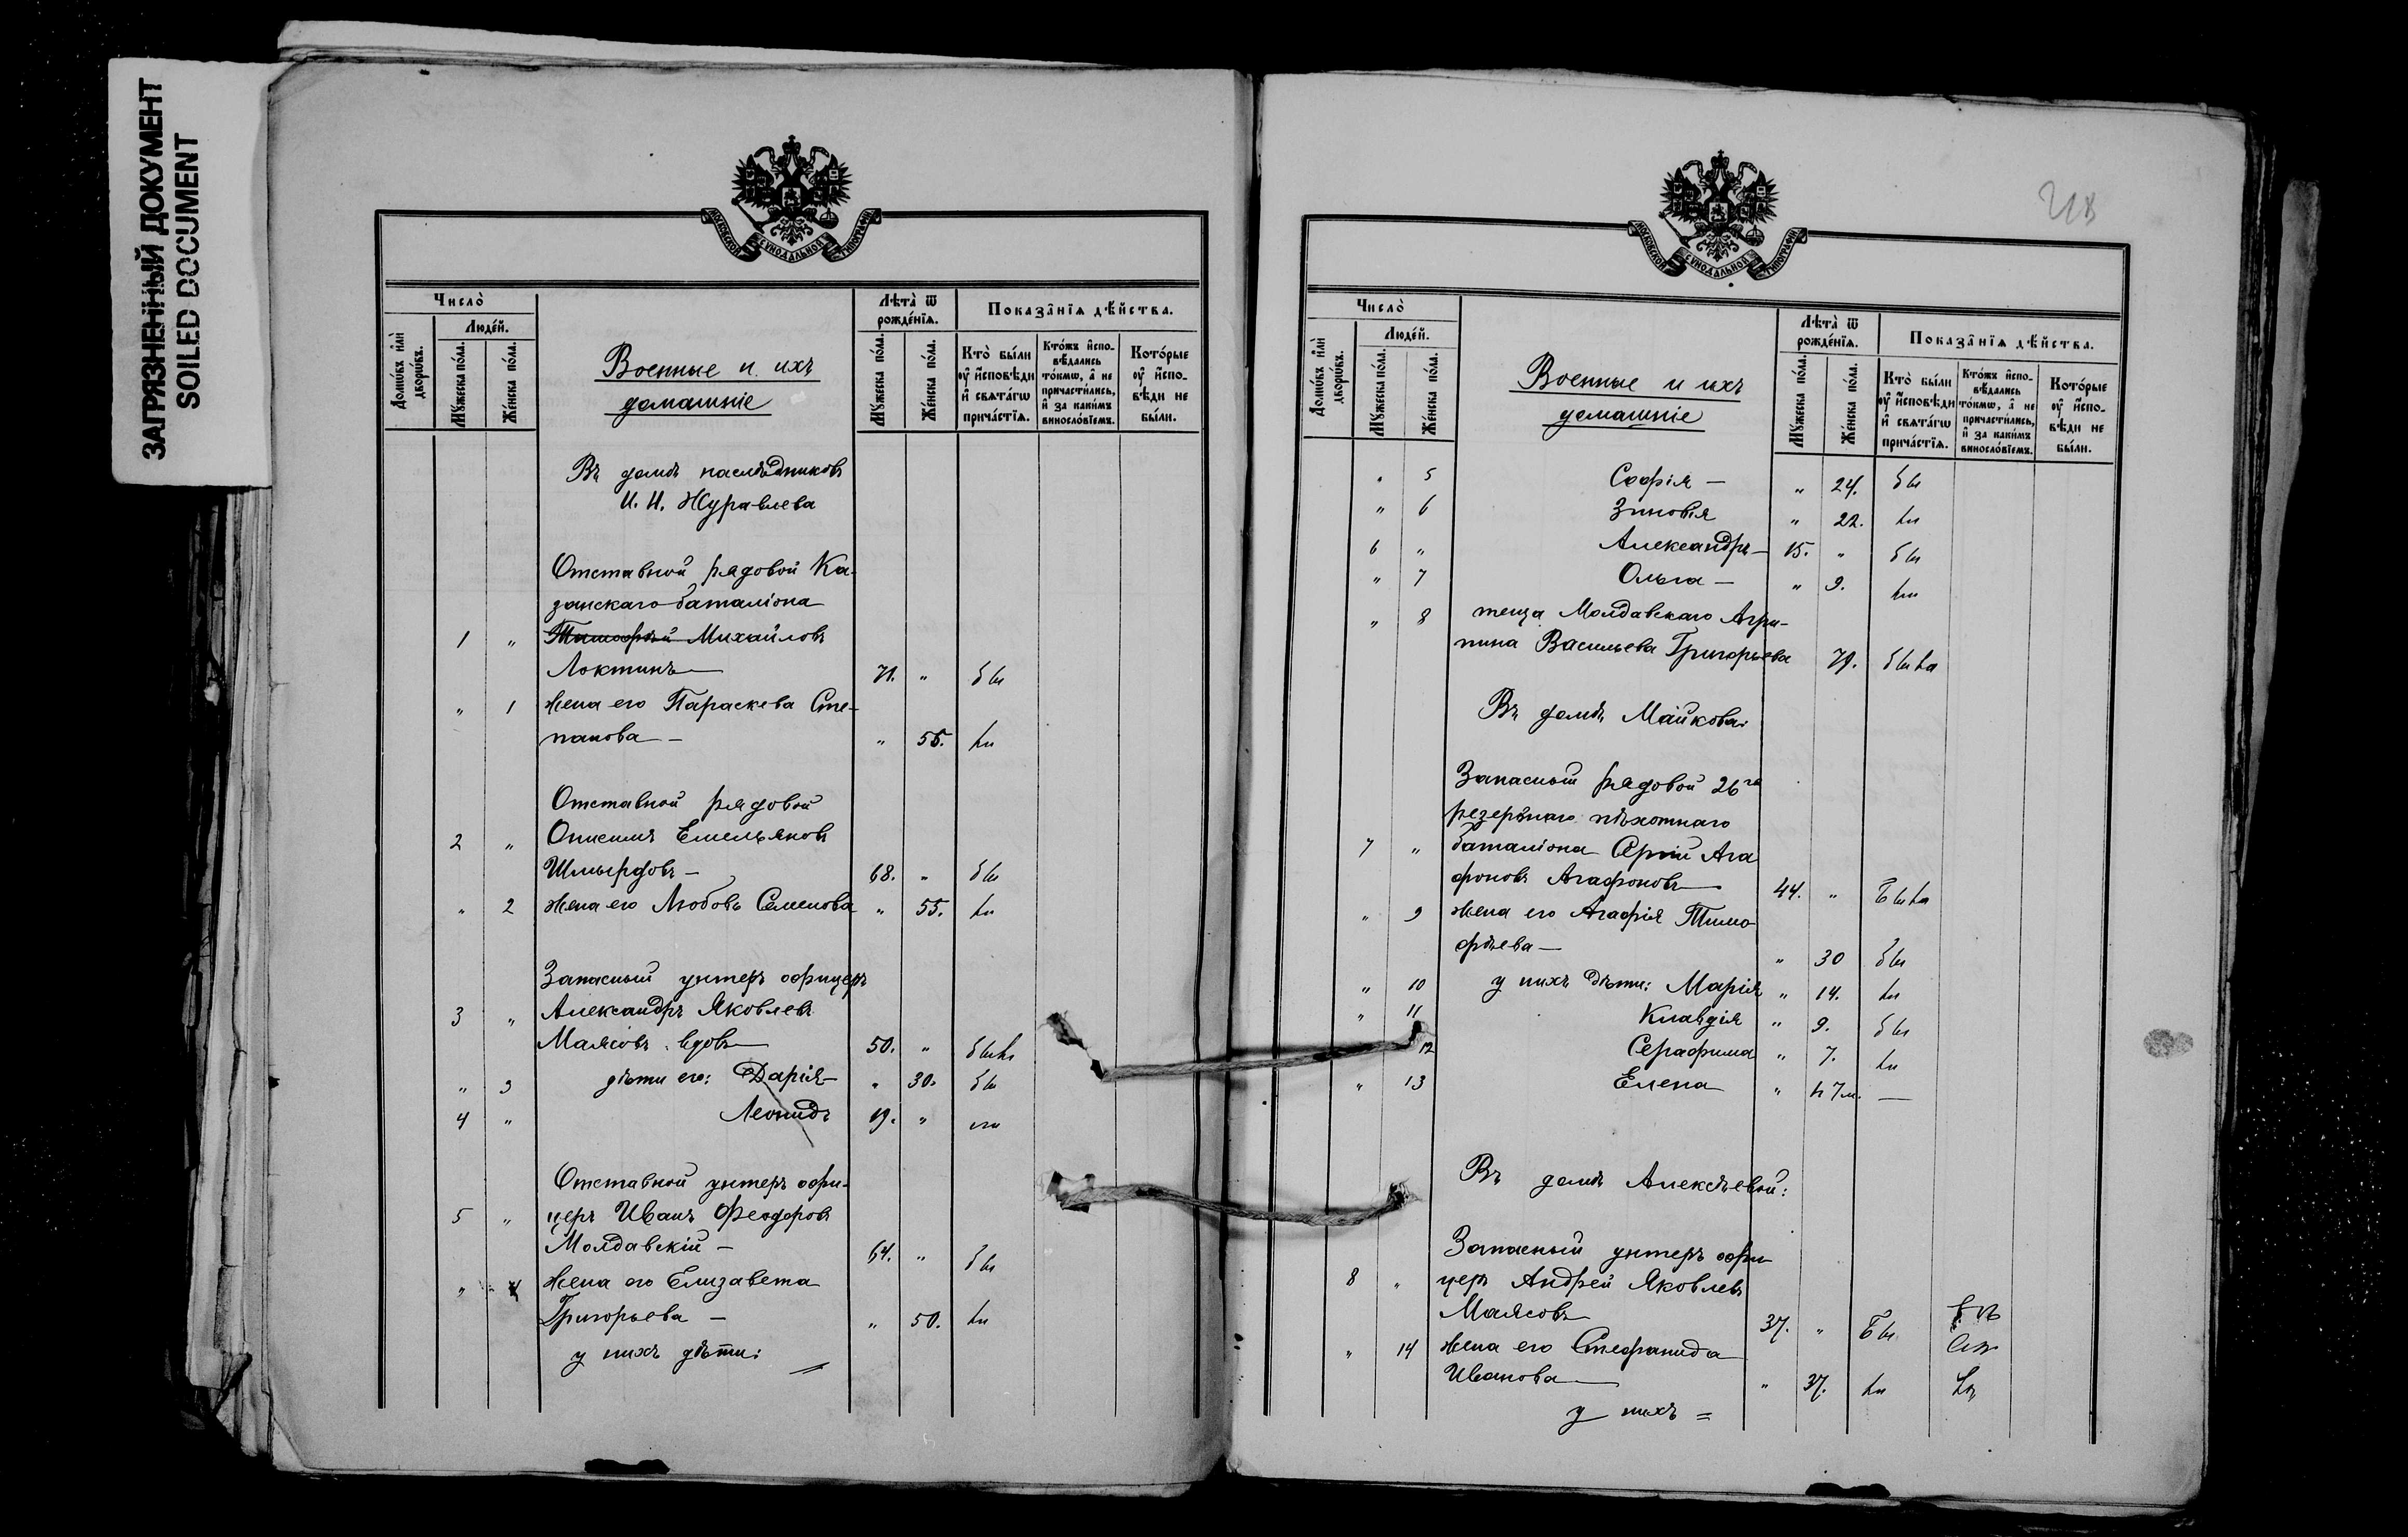 ЗАГРЯЗНЕННЫЙ ДОКУМЕНТ
SOILED DOCUMENT
МОСКОВСКОЙ СѴНОДАЛЬНОЙ ТИПОГРАФІИ
Число̀
Люде́й.
Домѡ́въ и҆лѝ дворѡ́въ.
Мꙋ́жеска по́ла.
Же́нска по́ла.
Военные и ихъ
домашніе
Лѣта̀ ѿ рожде́нїѧ.
Мꙋ́жеска по́ла.
Же́нска по́ла.
Показа̑нїѧ дѣ́йства.
Кто̀ бы́ли ᲂу҆ и҆сповѣди и҆ свѧта́гѡ прича́стїѧ.
Кто́жъ и҆спо-вѣ́дались то́кмѡ, а҆ не причасти́лись, и҆ за каки́мъ винослові́емъ.
Кото́рые ᲂу҆ и҆спо-вѣди не бы́ли.
Въ домѣ наслѣдниковъ
И. И. Журавлева
Отставной рядовой Ка-
занскаго баталіона
1 „ Тимофѣй Михайловъ
Локтинъ — 71. „ бы
„ 1 жена его Параскева Сте-
панова — „ 55. ли
Отставной рядовой
2 „ Онисимъ Емельяновъ
Шмырдовъ — 68. „ бы
„ 2 жена его Любовь Семенова „ 55. ли
Запасный унтеръ офицеръ
3 „ Александръ Яковлевъ
Маясовъ вдовъ 50. „
„ 3 дѣти его: Дарія — „ 30. бы
4 „ Леонидъ 19. „ ли
Отставной унтеръ офи-
5 „ церъ Иванъ Феодоровъ
Молдавскій — 64. „ бы
„ 4 жена его Елизавета
Григорьева — „ 50. ли
у нихъ дѣти:
МОСКОВСКОЙ СѴНОДАЛЬНОЙ ТИПОГРАФІИ
Число̀
Люде́й.
Домѡ́въ и҆лѝ дворѡ́въ.
Мꙋ́жеска по́ла.
Же́нска по́ла.
Военные и ихъ
домашніе
Лѣта̀ ѿ рожде́нїѧ.
Мꙋ́жеска по́ла.
Же́нска по́ла.
Показа̑нїѧ дѣ́йства.
Кто̀ бы́ли ᲂу҆ и҆сповѣди и҆ свѧта́гѡ прича́стїѧ.
Кто́жъ и҆спо-вѣ́дались то́кмѡ, а҆ не причасти́лись, и҆ за каки́мъ винослові́емъ.
Кото́рые ᲂу҆ и҆спо-вѣди не бы́ли.
„ 5 Софія — „ 24. бы
„ 6 Зиновія „ 22. ли
6 „ Александръ — 15. „ бы
„ 7 Ольга — „ 9. ли
„ 8 теща Молдавскаго Агри-
пина Васильева Григорьева была
Въ домѣ Майкова:
Запасный рядовой 26го
резервнаго пѣхотнаго
7 „ баталіона Сергій Ага
фоновъ Агафоновъ — 44. „ Была
„ 9 жена его Агафія Тимо
фѣева — „ 30 бы
„ 10 у нихъ дѣти: Марія „ 14. ли
„ 11 Клавдія „ 9. бы
12 Серафима „ 7. ли
„ 13 Елена „ 7 м. —
Въ домѣ Алексѣевой:
Запасный унтеръ офи
8 „ церъ Андрей Яковлевъ
Маясовъ 37. „ Бы
„ 14 жена его Стефанида
Иванова — „ 37. ли
у нихъ =